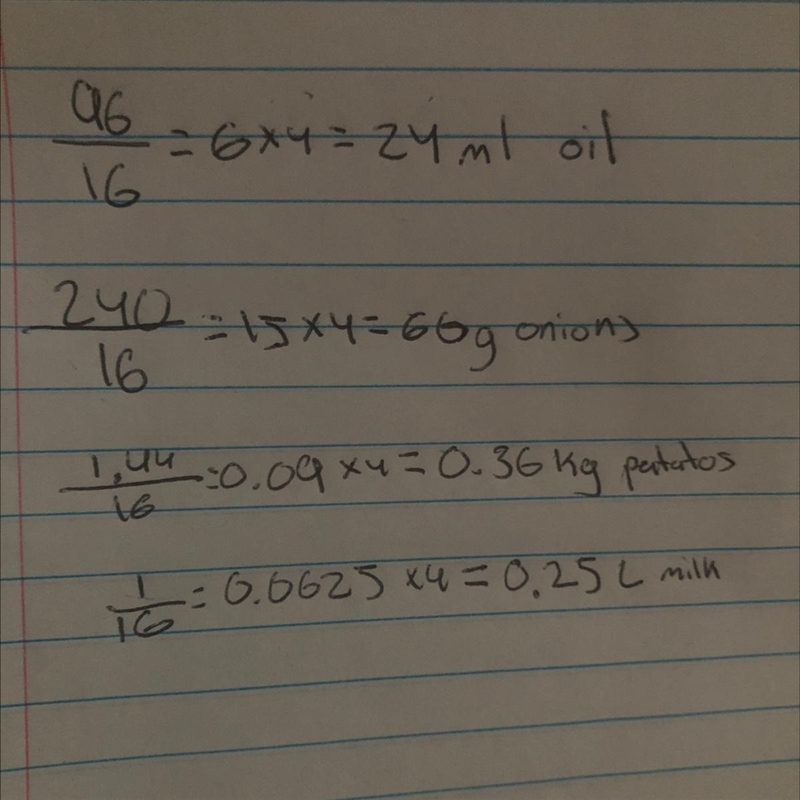 96/16 = 6 x 4 = 24 ml oil
240/16 = 15 x 4 = 60g onions
1.44/16 = 0.09 x 4 = 0.36 kg potatos
1/16 = 0.0625 x 4 = 0.25 L milk